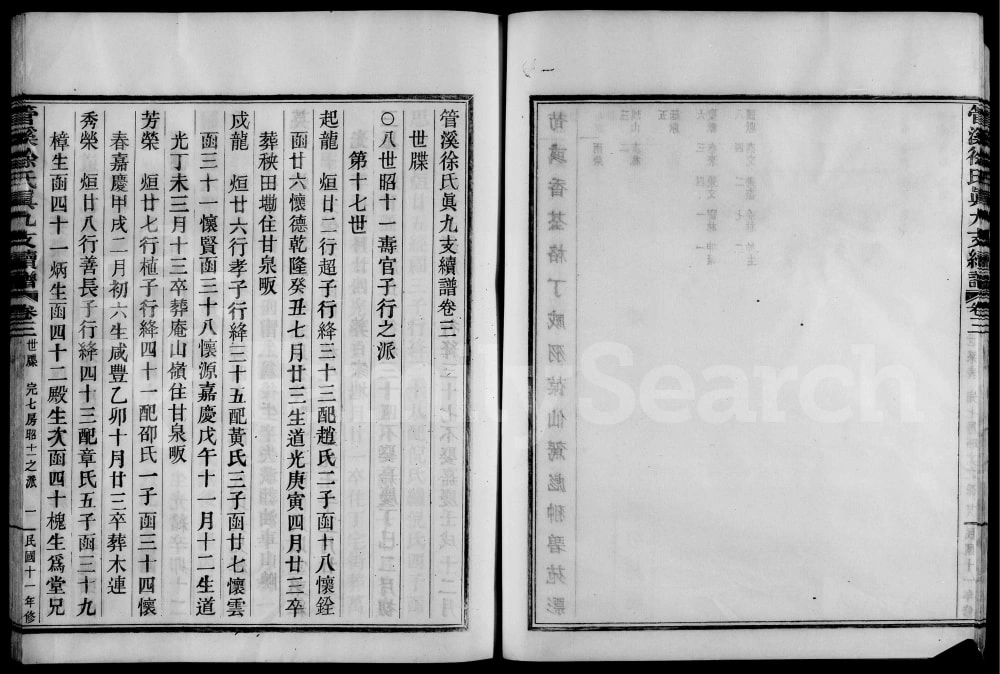 管溪徐氏眞九支續譜卷三
世牒
〇八世昭十一壽官子行之派
第十七世
起龍　烜廿二行超子行絳三十三配趙氏二子函十八懷銓
函廿六懷德乾隆癸丑七月廿三生道光庚寅四月廿三卒
葬秧田塝住甘泉畈
成龍　烜廿六行孝子行絳三十五配黃氏三子函廿七懷雲
函三十一懷賢函三十八懷源嘉慶戊午十一月十二生道
光丁未三月十三卒葬庵山嶺住甘泉畈
芳榮　烜廿七行植子行絳四十一配邵氏一子函三十四懷
春嘉慶甲戌二月初六生咸豐乙卯十月廿三卒葬木連
秀榮　烜廿八行善長子行絳四十三配章氏五子函三十九
樟生函四十一炳生函四十二殿生次函四十槐生爲堂兄
管溪徐氏眞九支續譜 卷三 世牒　完七房昭十一之派　一　民國十一年修
管溪徐氏眞九支續譜 卷三
FamilySearch